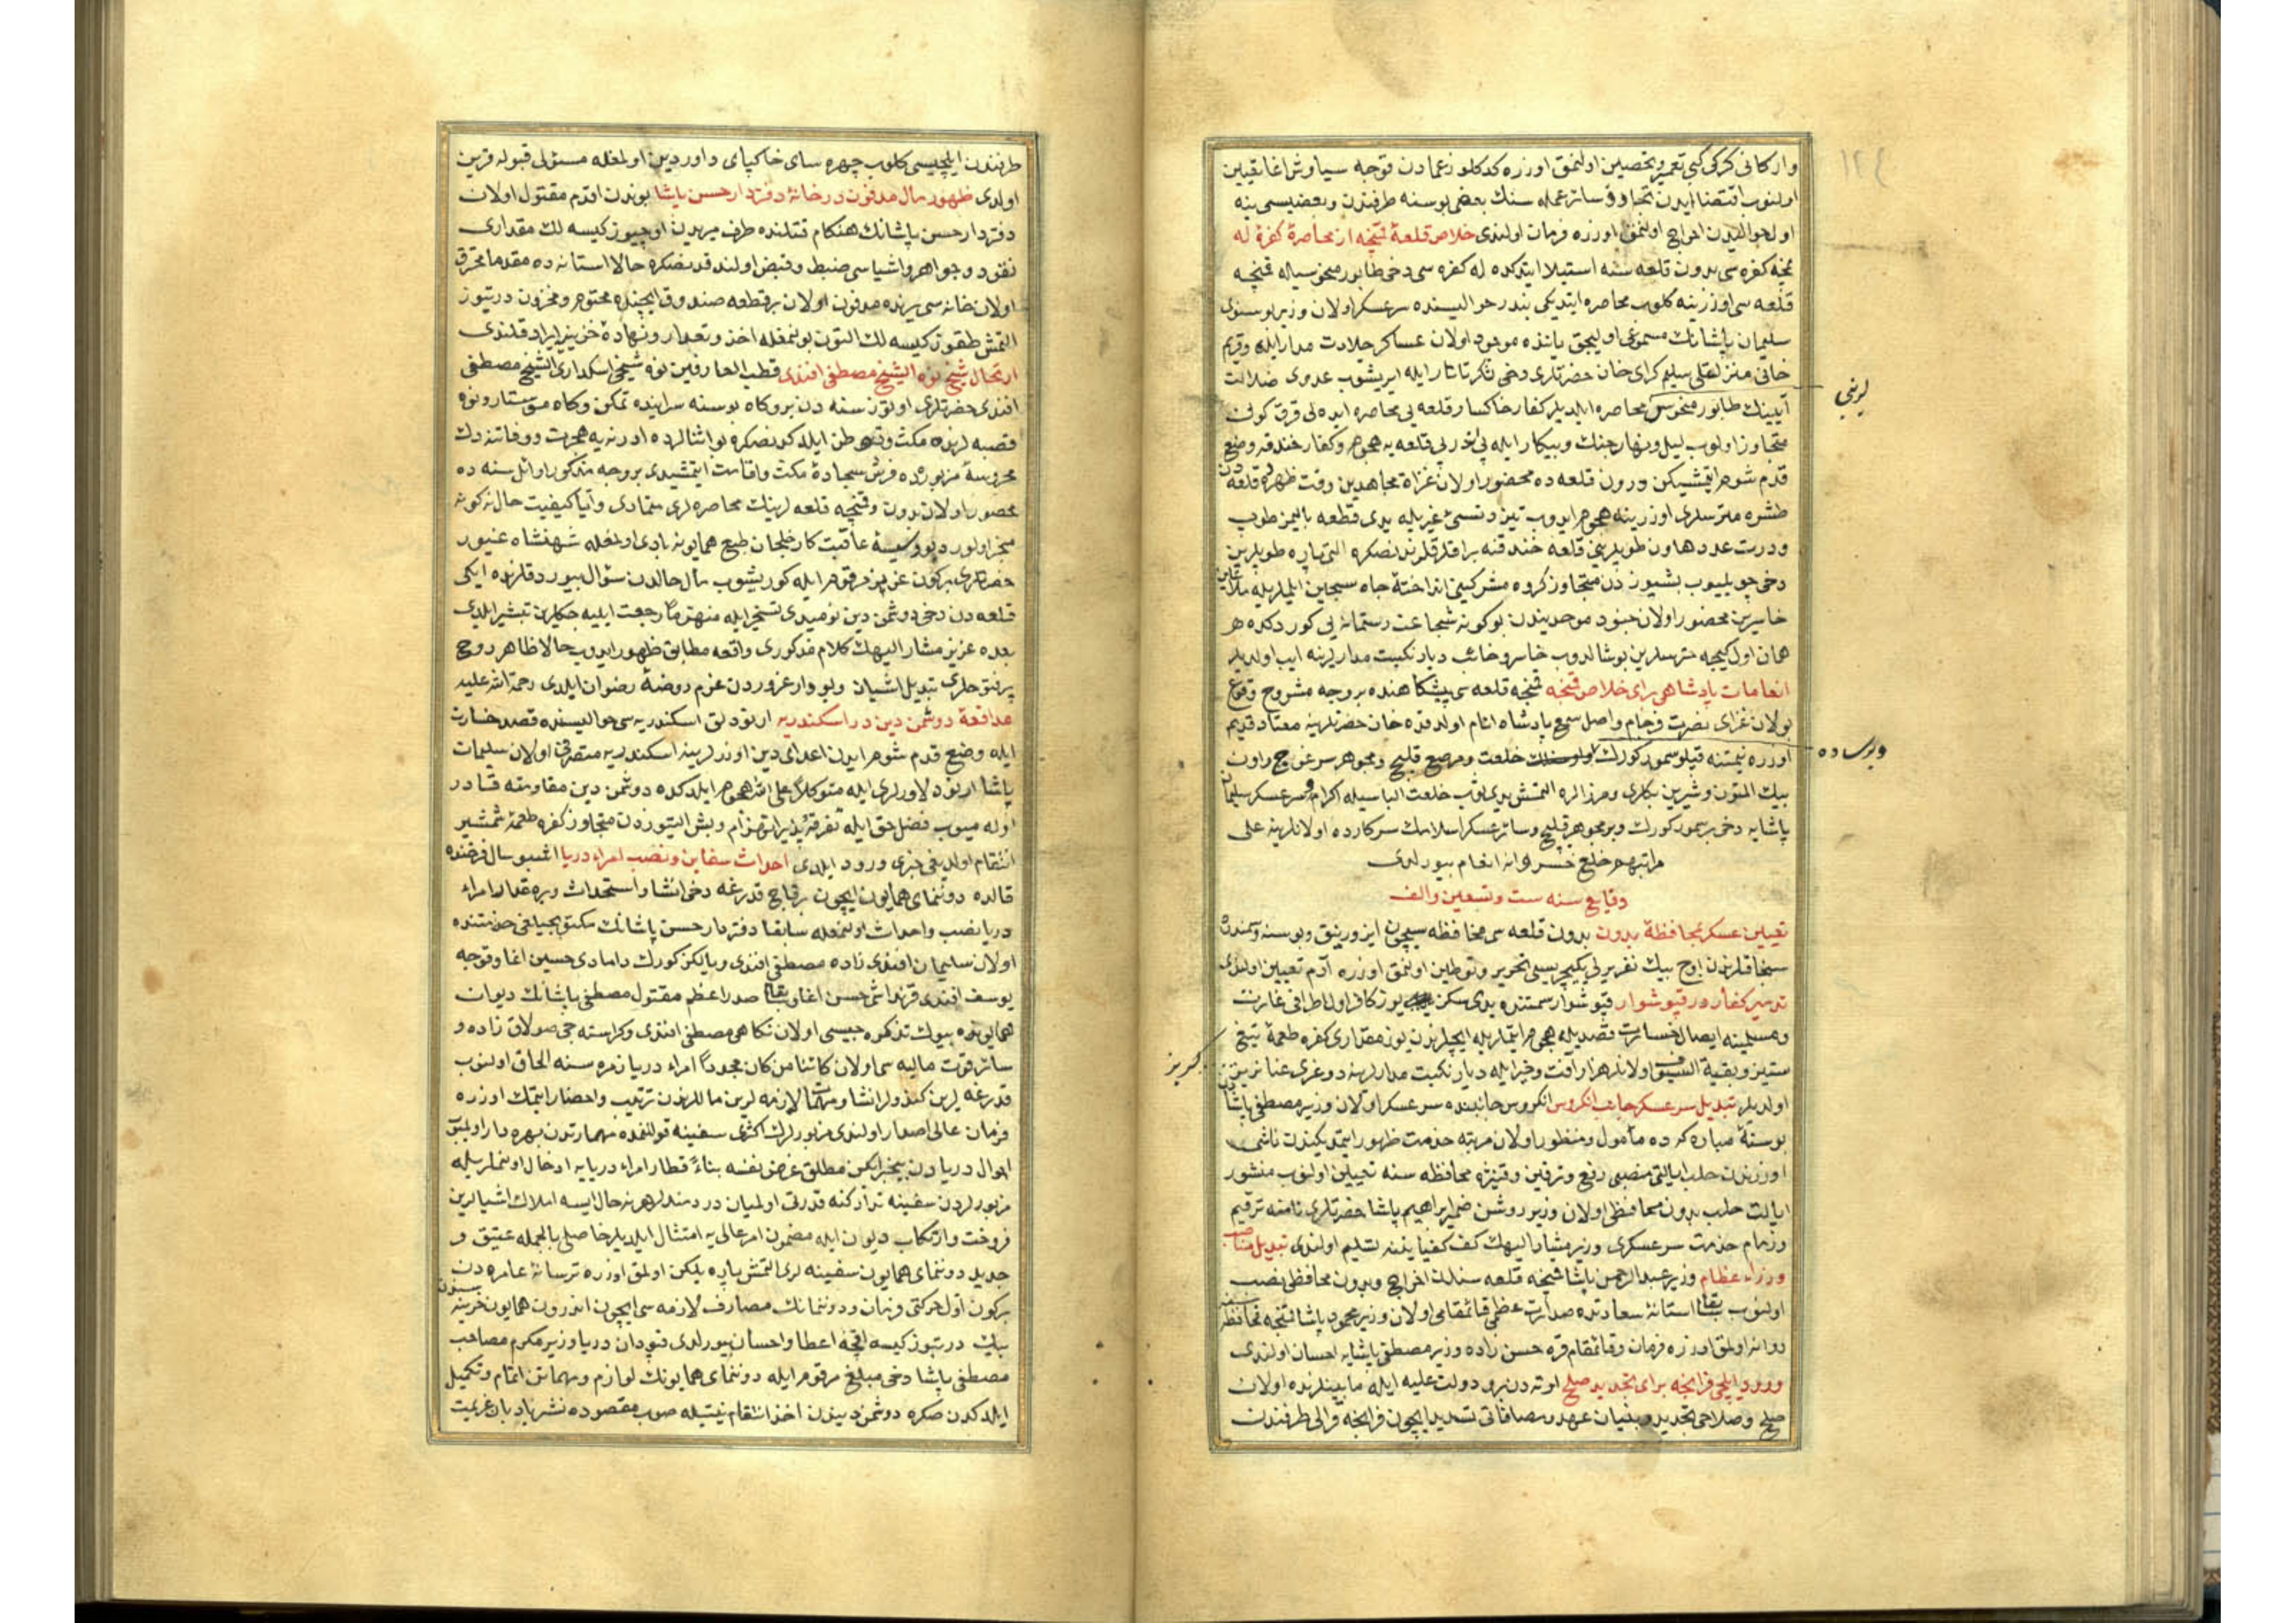 واركانی كركی كبی تعمیر و تحصین اولنمق اوزره كدكلو زعمادن توجه سیاوش اغا تعیین
اولنوب اقتضا ایدن سائر عمله سنك بعضی بوسنه طرفندن وبعضیسی ینه
اول حوالیدن اخراج اولنمق اوزره فرمان اولندی خلاص قلعۀ قنیجه از محاصرۀ كفرۀ له
نمچه كفره سی بدون قلعه سنه استیلا ایتدكده له كفره سی دخی طابور منحوسیله قنیجه
قلعه سی اوزرینه كلوب محاصره ایتدیكی بندر حوالیسنده سرعسكر اولان وزیر بوسنوی
سلیمان پاشانك مسموعی اولیجق یاننده موجود اولان عساكر جلادت مدار ایله وقریم
خانی منزلتلی سلیم كرای خان حضرتلری دخی لشكر تاتار ایله ایریشوب عدوی ضلالت
آیینك طابور منحوسن محاصره ایلدیلر كفار خاكسار قلعه یی محاصره ایده لی قرق كوندن
متجاوز اولوب لیل ونهار جنك وپیكار ایله پی اندر پی قلعه یه هجوم وكفار خندقه وضع
قدم شوم ایتمشیكن درون قلعه ده محصور اولان غزاة مجاهدین وقت ظهرده قلعه دن
طشره مترسلری اوزرینه هجوم ایدوب یدی قطعه بالیمز طوب
ودرت عدد هاون طوپلرینی قلعه خندقنه براقلدقدنصكره التی پاره طوپلرین
دخی چویلیوب بشیوزدن متجاوز كروه مشركینی انداختۀ چاه سجین ایلملریله ملاعین
خاسرین محصور اولان جنود موحدیندن بو كونه شجاعت رستمانه یی كوردكده
همان اول كیجه مترسلرین بوشالدوب خاسر وخائب دیار نكبت مدارلرینه ایاب اولدیلر
انعامات پادشاهی برای خلاص قنیجه قنیجه قلعه سی پیشكاهنده بروجه مشروح وقوع
بولان غزای نصرت فرجام واصل سمع پادشاه انام اولدقده خان حضرتلرینه معتاد قدیم
اوزره نیمتنه قپلو سمور كورك خلعت ومرصع قلیج ومجوهر سرغوج واون
بیك التون وشیرین بكلری ومیرزالره التمش یدی ثوب خلعت الباسیله اكرام وسرعسكر سلیمان
پاشایه دخی بر سمور كورك وبر مجوهر قلیج وسائر عسكر اسلامك سركارده اولانلرینه علی
مراتبهم خلع خسروانه انعام بیورلدی
وقایع سنه ست وتسعین والف
تعیین عسكر بمحافظۀ بدون بدون قلعه سی محافظه سیچون ایزورنیق وبوسنه وسمندره
سنجاقلرندن اوچ بیك نفر یرلی یكیچریسی تحریر وتوطین اولنمق اوزره آدم تعیین اولندی
تدمیر كفار در قپوشوار قپوشوار سمتنده یدی سكز یوز كافر اول اطرافی غارت
ومسلمینه ایصال خسارت قصدیله هجوم ایتملریله ایچلرندن یوز مقداری كفره طعمۀ تیغ
ستیز وبقیة السیوف اولانلر هزار آفت وخیزایله دیار نكبت مدارلرینه دوغری عنانریز
اولدیلر تبدیل سرعسكر جانب انكروس انكروس جانبنده سرعسكر اولان وزیر مصطفی پاشادن
بو سنۀ مباركه ده مأمول ومنظور اولان مرتبه خدمت ظهور ایتمدیكندن ناشی
اوزرندن حلب ایالتی منصبی رفع وترقین وقنیژه محافظه سنه تعیین اولنوب منشور
ایالت حلب بدون محافظی اولان وزیر روشن ضمیر ابراهیم پاشا حضرتلری نامنه ترقیم
وزمام خدمت سرعسكری وزیر مشار الیهك كف كفایتنه تسلیم اولندی تبدیل مناصب
وزراء عظام وزیر عبدالرحمن پاشا قنیجه قلعه سندن اخراج وبدون محافظی نصب
اولنوب سابقا استانۀ سعادتده صدارت عظمی قائمقامی اولان وزیر محمود پاشا قنیجه محافظه سنه
روانه اولمق اوزره فرمان وقائمقام قره حسن زاده وزیر مصطفی پاشایه احسان اولندی
ورود ایلچی فرانچه برای تجدید صلح اوته دن برو دولت علیه ایله مابینلرنده اولان
صلح وصلاحی تجدید وبنیان عهد ومصافاتی تشدید ایچون فرانچه قرالی طرفندن
لرینی
وبوسادۀ
كریز
طرفندن ایلچیسی كلوب چهره سای خاكپای داوردین اولمغله مسئولی قبوله قرین
اولدی ظهور مال مدفون در خانۀ دفتردار حسن پاشا بوندن اقدم مقتول اولان
دفتردار حسن پاشانك هنكام قتلنده طرف میریدن اوچیوز كیسه لك مقداری
نقود وجواهر واشیاسی ضبط وقبض اولندقدنصكره حالا استانه ده مقدما محترق
اولان خانه سی یرنده مدفون اولان بر قطعه صندوق ایچنده مختوم ومخزون درتیوز
التمش طقوز كیسه لك التون بولنمغله اخذ وتعداد ونهادۀ خزینۀ ایراد قلندی
ارتحال شیخ نوه الشیخ مصطفی افندی قطب العارفین نوه شیخی اسكداری الشیخ مصطفی
افندی حضرتلری اوتوز سنه دن برو كاه بوسنه سراینده تمكن وكاه موستار ونوه
قصبه لرنده مكث وتوطن ایلدكدنصكره بو اثنالرده ادرنه یه هجرت ووفاتنه دك
محروسۀ مزبورده فرش سجادۀ مكث واقامت ایتمشیدی بر وجه مذكور اوائل سنه ده
محصور اولان بدون وقنیجه قلعه لرینك محاصره لری متمادی وآیا كیفیت حال نه كونه
منجر اولور دیو وسوسۀ عاقبت كار خلجان طبع همایونه بادی اولمغله شهنشاه غیور
حضرتلری بر كون عزیز مرقوم ایله كوریشوب مآل حالدن سؤال بیوردقلرنده ایكی
قلعه دن دخی دوشمن دین نومیدی تسخیر ایله منهزما رجعت ایلیه جكلرین تبشیر ایلدی
بعده عزیز مشار الیهك كلام مذكوری واقعه مطابق ظهور ایدوب حالا طاهر روح
پرفتوحلری تبدیل اشیان وبو دار غروردن عزم روضۀ رضوان ایلدی رحمة الله علیه
مدافعۀ دوشمن دین در اسكندریه ارنودلق اسكندریه سی حوالیسنده قصد خسارت
ایله وضع قدم شوم ایدن اعدای دین اوزرلرینه اسكندریه متصرفی اولان سلیمان
پاشا ارنود دلاورلری ایله متوكلا علی الله هجوم ایلدكده دوشمن دین مقاومته قادر
اوله میوب فضل حق ایله تفرقه پذیر انهزام وبش التیوزدن متجاوز كفره طعمۀ شمشیر
انتقام اولدیغی خبری ورود ایلدی احداث سفاین ونصب امراء دریا اشبو سال فرخنده
فالده دوننمای همایون ایچون بر قاچ قدرغه دخی انشا واستحداث وبر مقدار امراء
دریا نصب واحداث اولنمغله سابقا دفتردار حسن پاشانك مكتوبجیلغی خدمتنده
اولان سلیمان افندی زاده مصطفی افندی ویالكز كورك دامادی حسین اغا وقوجه
یوسف افندی قرنداشی حسن اغا وسابقا صدر اعظم مقتول مصطفی پاشانك دیوان
همایونده بیوك تذكره جیسی اولان نكاهی مصطفی افندی وكراسته جی صولاق زاده و
سائر قوت مالیه سی اولان كائنا من كان مجددا امراء دریا زمره سنه الحاق اولنوب
قدرغه لرین كندولر انشا ومهمات لازمه لرین ماللرندن ترتیب واحضار ایتمك اوزره
فرمان عالی اصدار اولندی مزبورلرك اكثری سفینه قوللنمده مهارتدن بهره دار اولمیوب
احوال دریادن بیخبر ایكن مطلق غرض نفسه بناء قطار امراء دریایه ادخال اولنملریله
مزبورلردن سفینه تداركنه قدرتی اولمیان دردمندلر هر نه حال ایسه املاك اشیالرین
فروخت وارتكاب دیون ایله مضمون امر عالی یه امتثال ایلدیلر حاصلی بالجمله عتیق و
جدید دوننمای همایون سفینه لری التمش پاره یلكن اولمق اوزره ترسانۀ عامره دن
بر كون اول حركتی فرمان ودوننمانك مصارف لازمه سی ایچون اندرون همایون خزینه سندن
بیك درتیوز كیسه اقچه اعطا واحسان بیورلدی قپودان دریا وزیر مكرم مصاحب
مصطفی پاشا دخی مبلغ مرقوم ایله دوننمای همایونك لوازم ومهماتن اتمام وتكمیل
ایلدكدن صكره دوشمن دیندن اخذ انتقام نیتیله صوب مقصوده نشر بادبان عزیمت